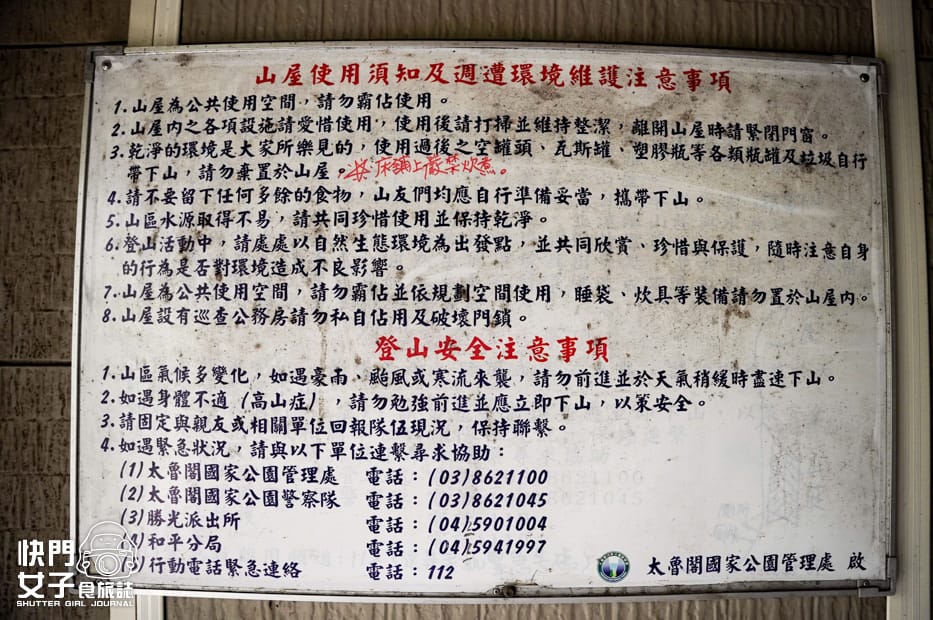 山屋使用須知及週遭環境維護注意事項
1.山屋為公共使用空間，請勿霸佔使用。
2.山屋內之各項設施請愛惜使用，使用後請打掃並維持整潔，離開山屋時請緊閉門窗。
3.乾淨的環境是大家所樂見的，使用過後之空罐頭、瓦斯罐、塑膠瓶等各類瓶罐及垃圾自行
帶下山，請勿棄置於山屋。 床鋪上嚴禁炊煮。
4.請不要留下任何多餘的食物，山友們均應自行準備妥當，攜帶下山。
5.山區水源取得不易，請共同珍惜使用並保持乾淨。
6.登山活動中，請處處以自然生態環境為出發點，並共同欣賞、珍惜與保護，隨時注意自身
的行為是否對環境造成不良影響。
7.山屋為公共使用空間，請勿霸佔並依規劃空間使用，睡袋、炊具等裝備請勿置於山屋內。
8.山屋設有巡查公務房請勿私自佔用及破壞門鎖。
登山安全注意事項
1.山區氣候多變化，如遇豪雨、颱風或寒流來襲，請勿前進並於天氣稍緩時盡速下山。
2.如遇身體不適（高山症），請勿勉強前進並應立即下山，以策安全。
3.請固定與親友或相關單位回報隊伍現況，保持聯繫。
4.如遇緊急狀況，請與以下單位連繫尋求協助：
(1)太魯閣國家公園管理處 電話：(03)8621100
(2)太魯閣國家公園警察隊 電話：(03)8621045
(3)勝光派出所 電話：(04)5901004
和平分局 電話：(04)5941997
行動電話緊急連絡 電話：112
太魯閣國家公園管理處 啟
快門
女子食旅誌
SHUTTER GIRL JOURNAL